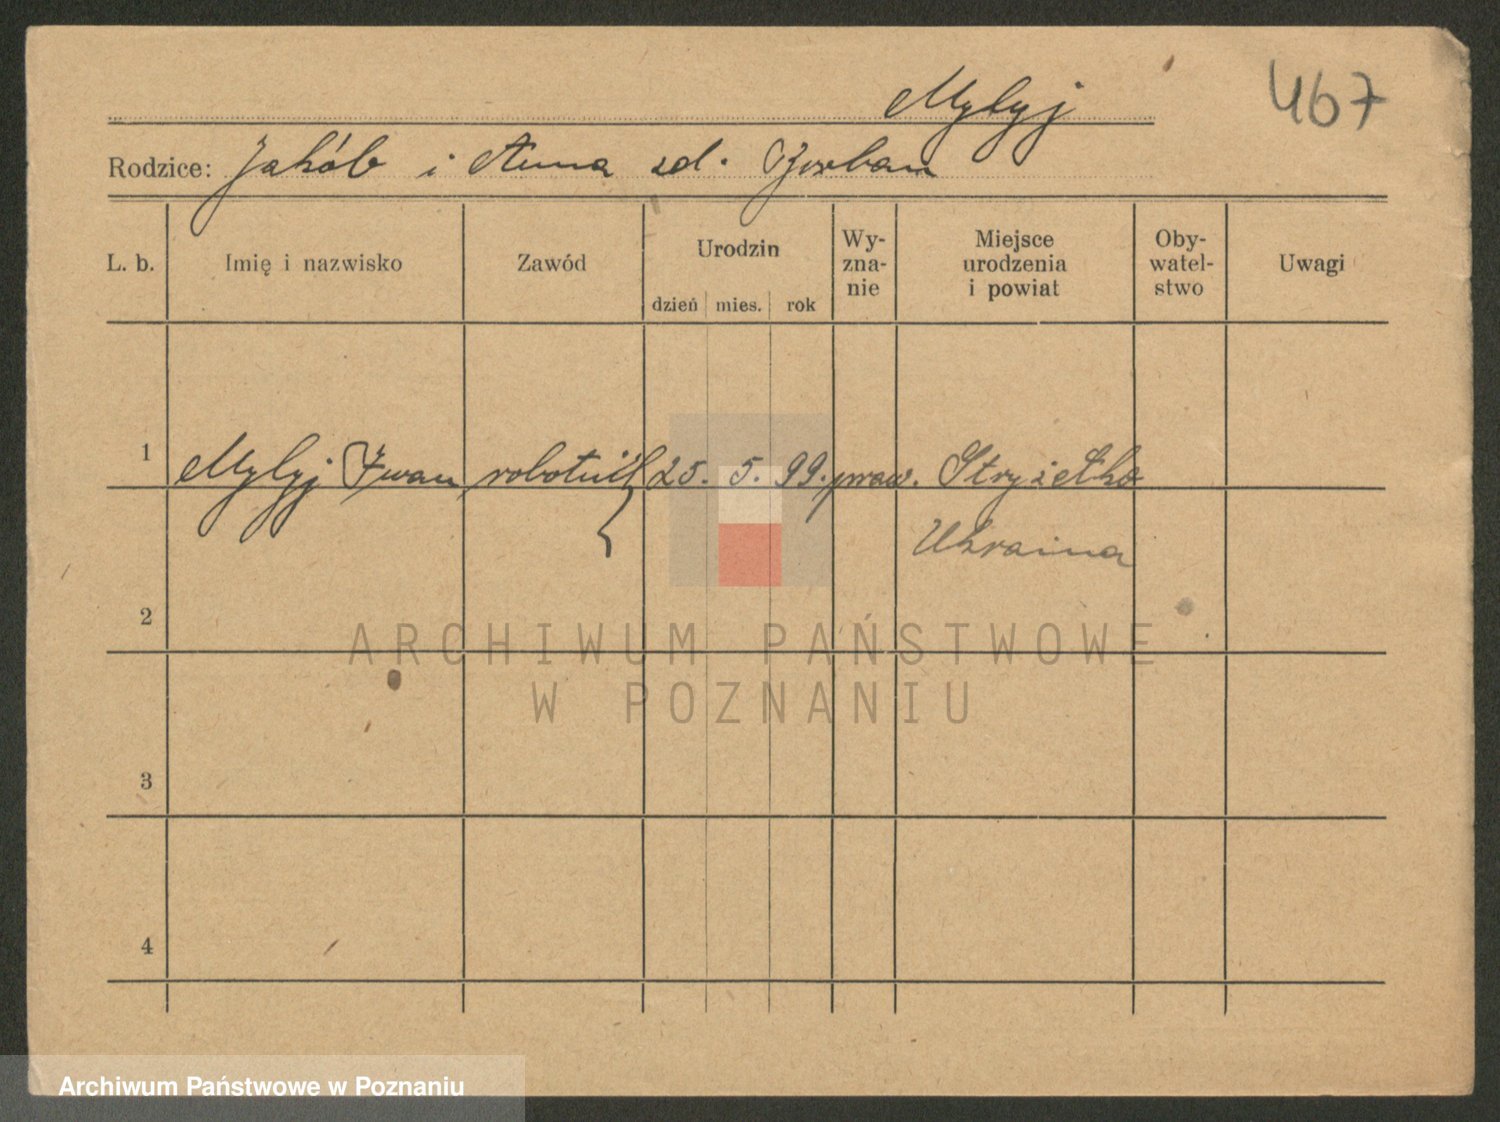 Mylyj
467
Rodzice: Jakób i Anna zd. Czorban
L. b. Imię i nazwisko Zawód Urodzin dzień mies. rok Wy-zna-nie Miejsce urodzenia i powiat Oby-watel-stwo Uwagi
1 Mylyj Iwan robotnik 25. 5. 99. praw. Stryżetka
Ukraina
2
ARCHIWUM PAŃSTWOWE
W POZNANIU
3
4
Archiwum Państwowe w Poznaniu